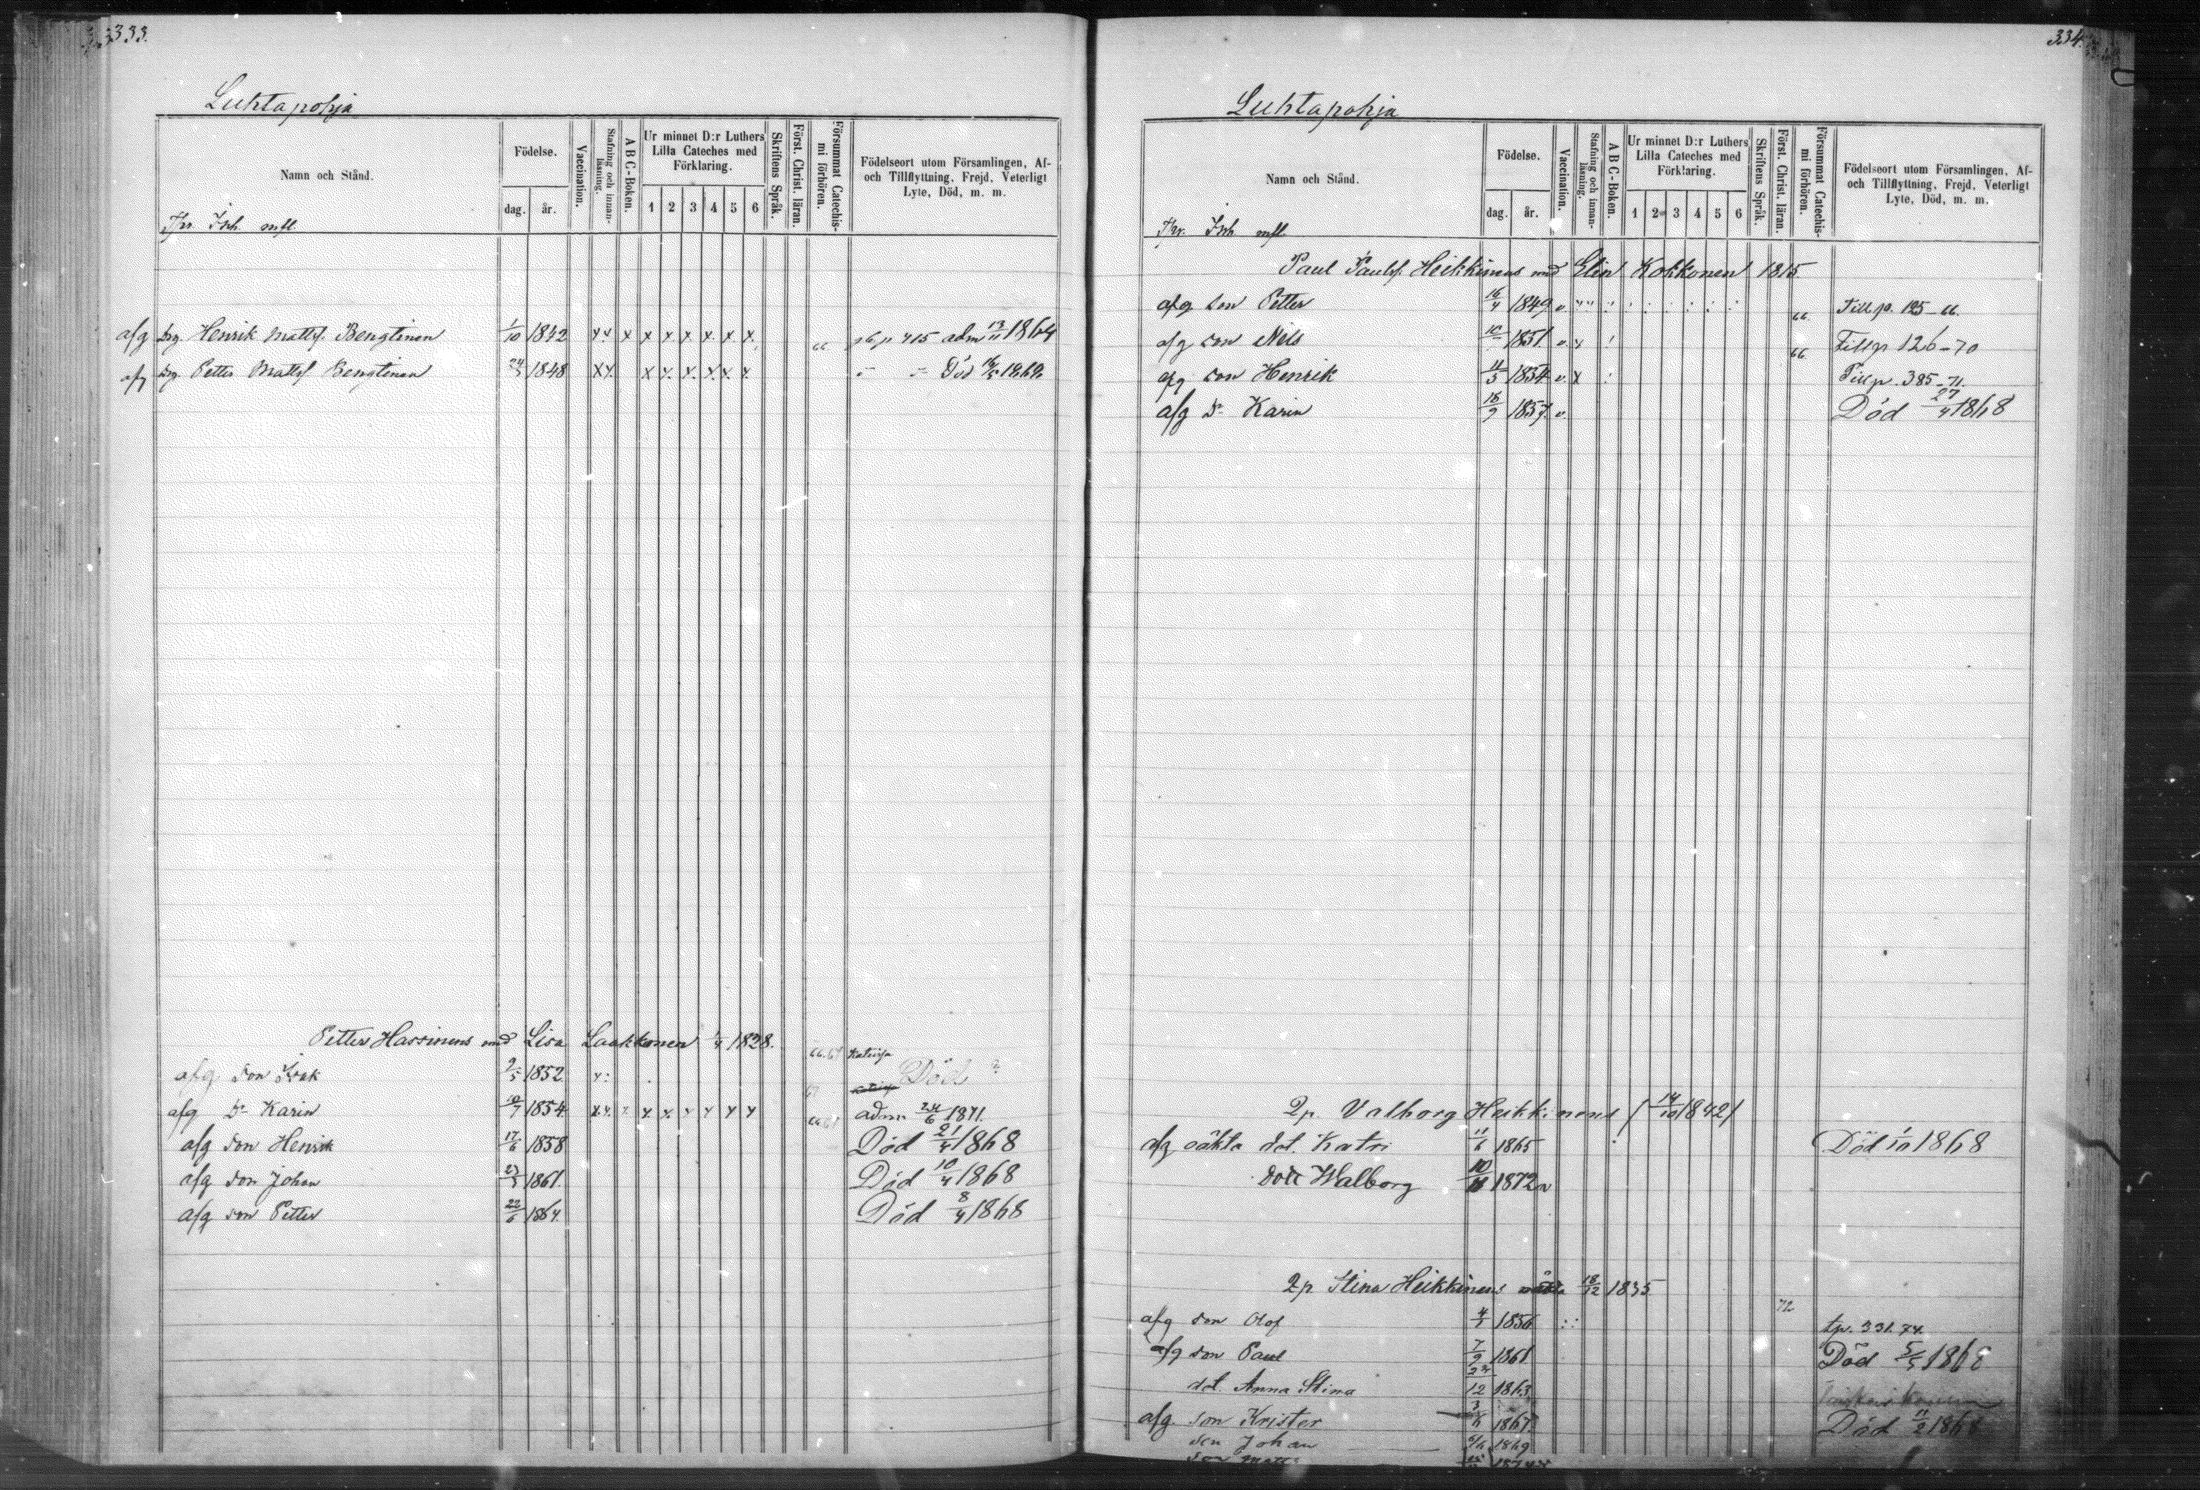 333.
Luhtapohja
Namn och Stånd.
Födelse.
dag. år.
Vaccination.
Stafning och innanläsning.
A B C-Boken.
Ur minnet D:r Luthers Lilla Cateches med Förklaring.
1 2 3 4 5 6
Skriftens Språk.
Först. Christ. läran.
Försummat Catechismi förhören.
Födelseort utom Församlingen, Af- och Tillflyttning, Frejd, Veterligt Lyte, Död, m. m.
Inh. mfl.
afg drg. Henrik Mattsf. Bengtinen 1/10 1842 x x x x x x x x x 66 p 415 adm 13/11 1864
afg drg. Petter Mattsf Bengtinen 24/3 1848 x x x x x x x x Död 1869.
Petter Hassinens Lisa Laakkonen 1828. 66.67
afg son Isak 9/5 1852 Död
afg Dr Karin 10/7 1854 x x x x x x x x adm 24/6 1871.
afg son Henrik 17/6 1858 Död 21/4 1868
afg son Johan 1861. Död 10/4 1868
afg son Petter 22/6 1864. Död 8/4 1868
334.
Luhtapohja
Namn och Stånd.
Födelse.
dag. år.
Vaccination.
Stafning och innanläsning.
A B C-Boken.
Ur minnet D:r Luthers Lilla Cateches med Förklaring.
1 2 3 4 5 6
Skriftens Språk.
Först. Christ. läran.
Försummat Catechismi förhören.
Födelseort utom Församlingen, Af- och Tillflyttning, Frejd, Veterligt Lyte, Död, m. m.
Inh mfl.
Paul Paulsf. Heikkinens Elin Kokkonen 1815
afg son Petter 16/4 1849 v. 66 Till p. 125 - 66.
afg son Nils 1851. v. 66 Till p 126 - 70
afg son Henrik 11/3 1854 v. x Till p. 385 - 71.
afg Dr Karin 16/9 1857. v. Död 27/4 1868
2p. Valborg Heikkinens (14/10 1842)
afg oäkta dot. Katri 11/6 1865 Död 1/10 1868
dott Walborg 1872 v
2p Stina Heikkinens 18/12 1835
72
afg son Olof 1856 tp. 331. 74.
afg son Paul 7/9 1861 Död 5/5 1868
dot. Anna Stina 1863
afg son Krister 1867. Död 11/2 1868
son Johan 1869
son Matts